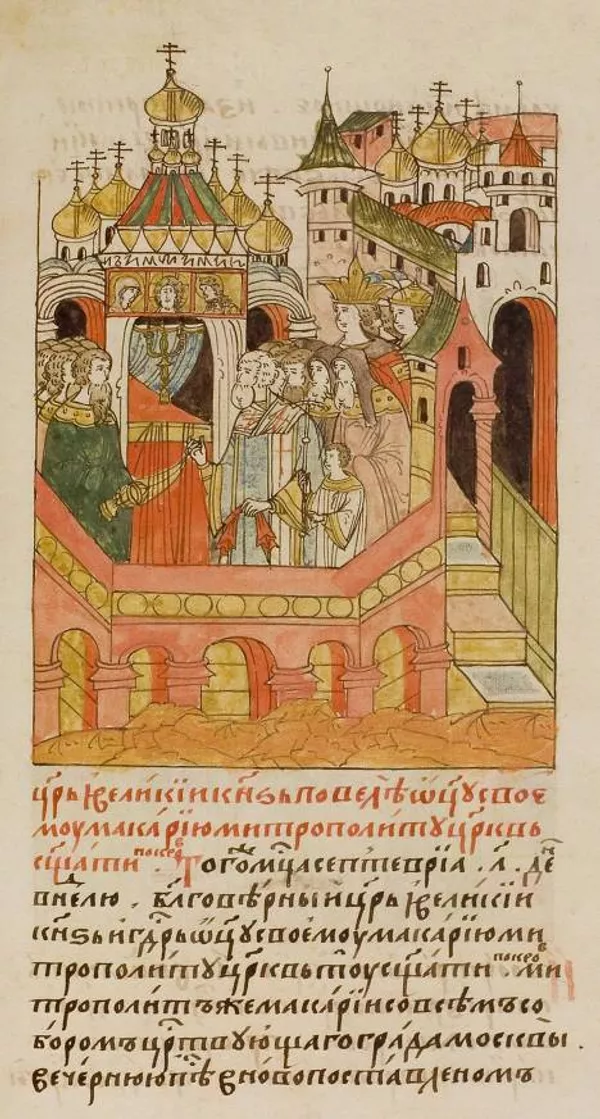 ц҃рь ивеликїи кн҃ѕь повелѣ ѿц҃у свое
моу макарїю митрополиту цр҃квь
сщ҃ати покров . Того мц҃а септеврїа . л҃ . дн҃ь
в нл҃ю . Бл҃говѣрныи ц҃рь ивеликїи
кн҃ѕь и гд҃рь ѿц҃у своемоу макарїю ми
трополиту цр҃квь тоу сщ҃ати покров . ми
трополитъ же макарїи со всѣмъ со
боромъ цр҃твующаго града москвы .
вечернюю пѣв новопоставленомъ